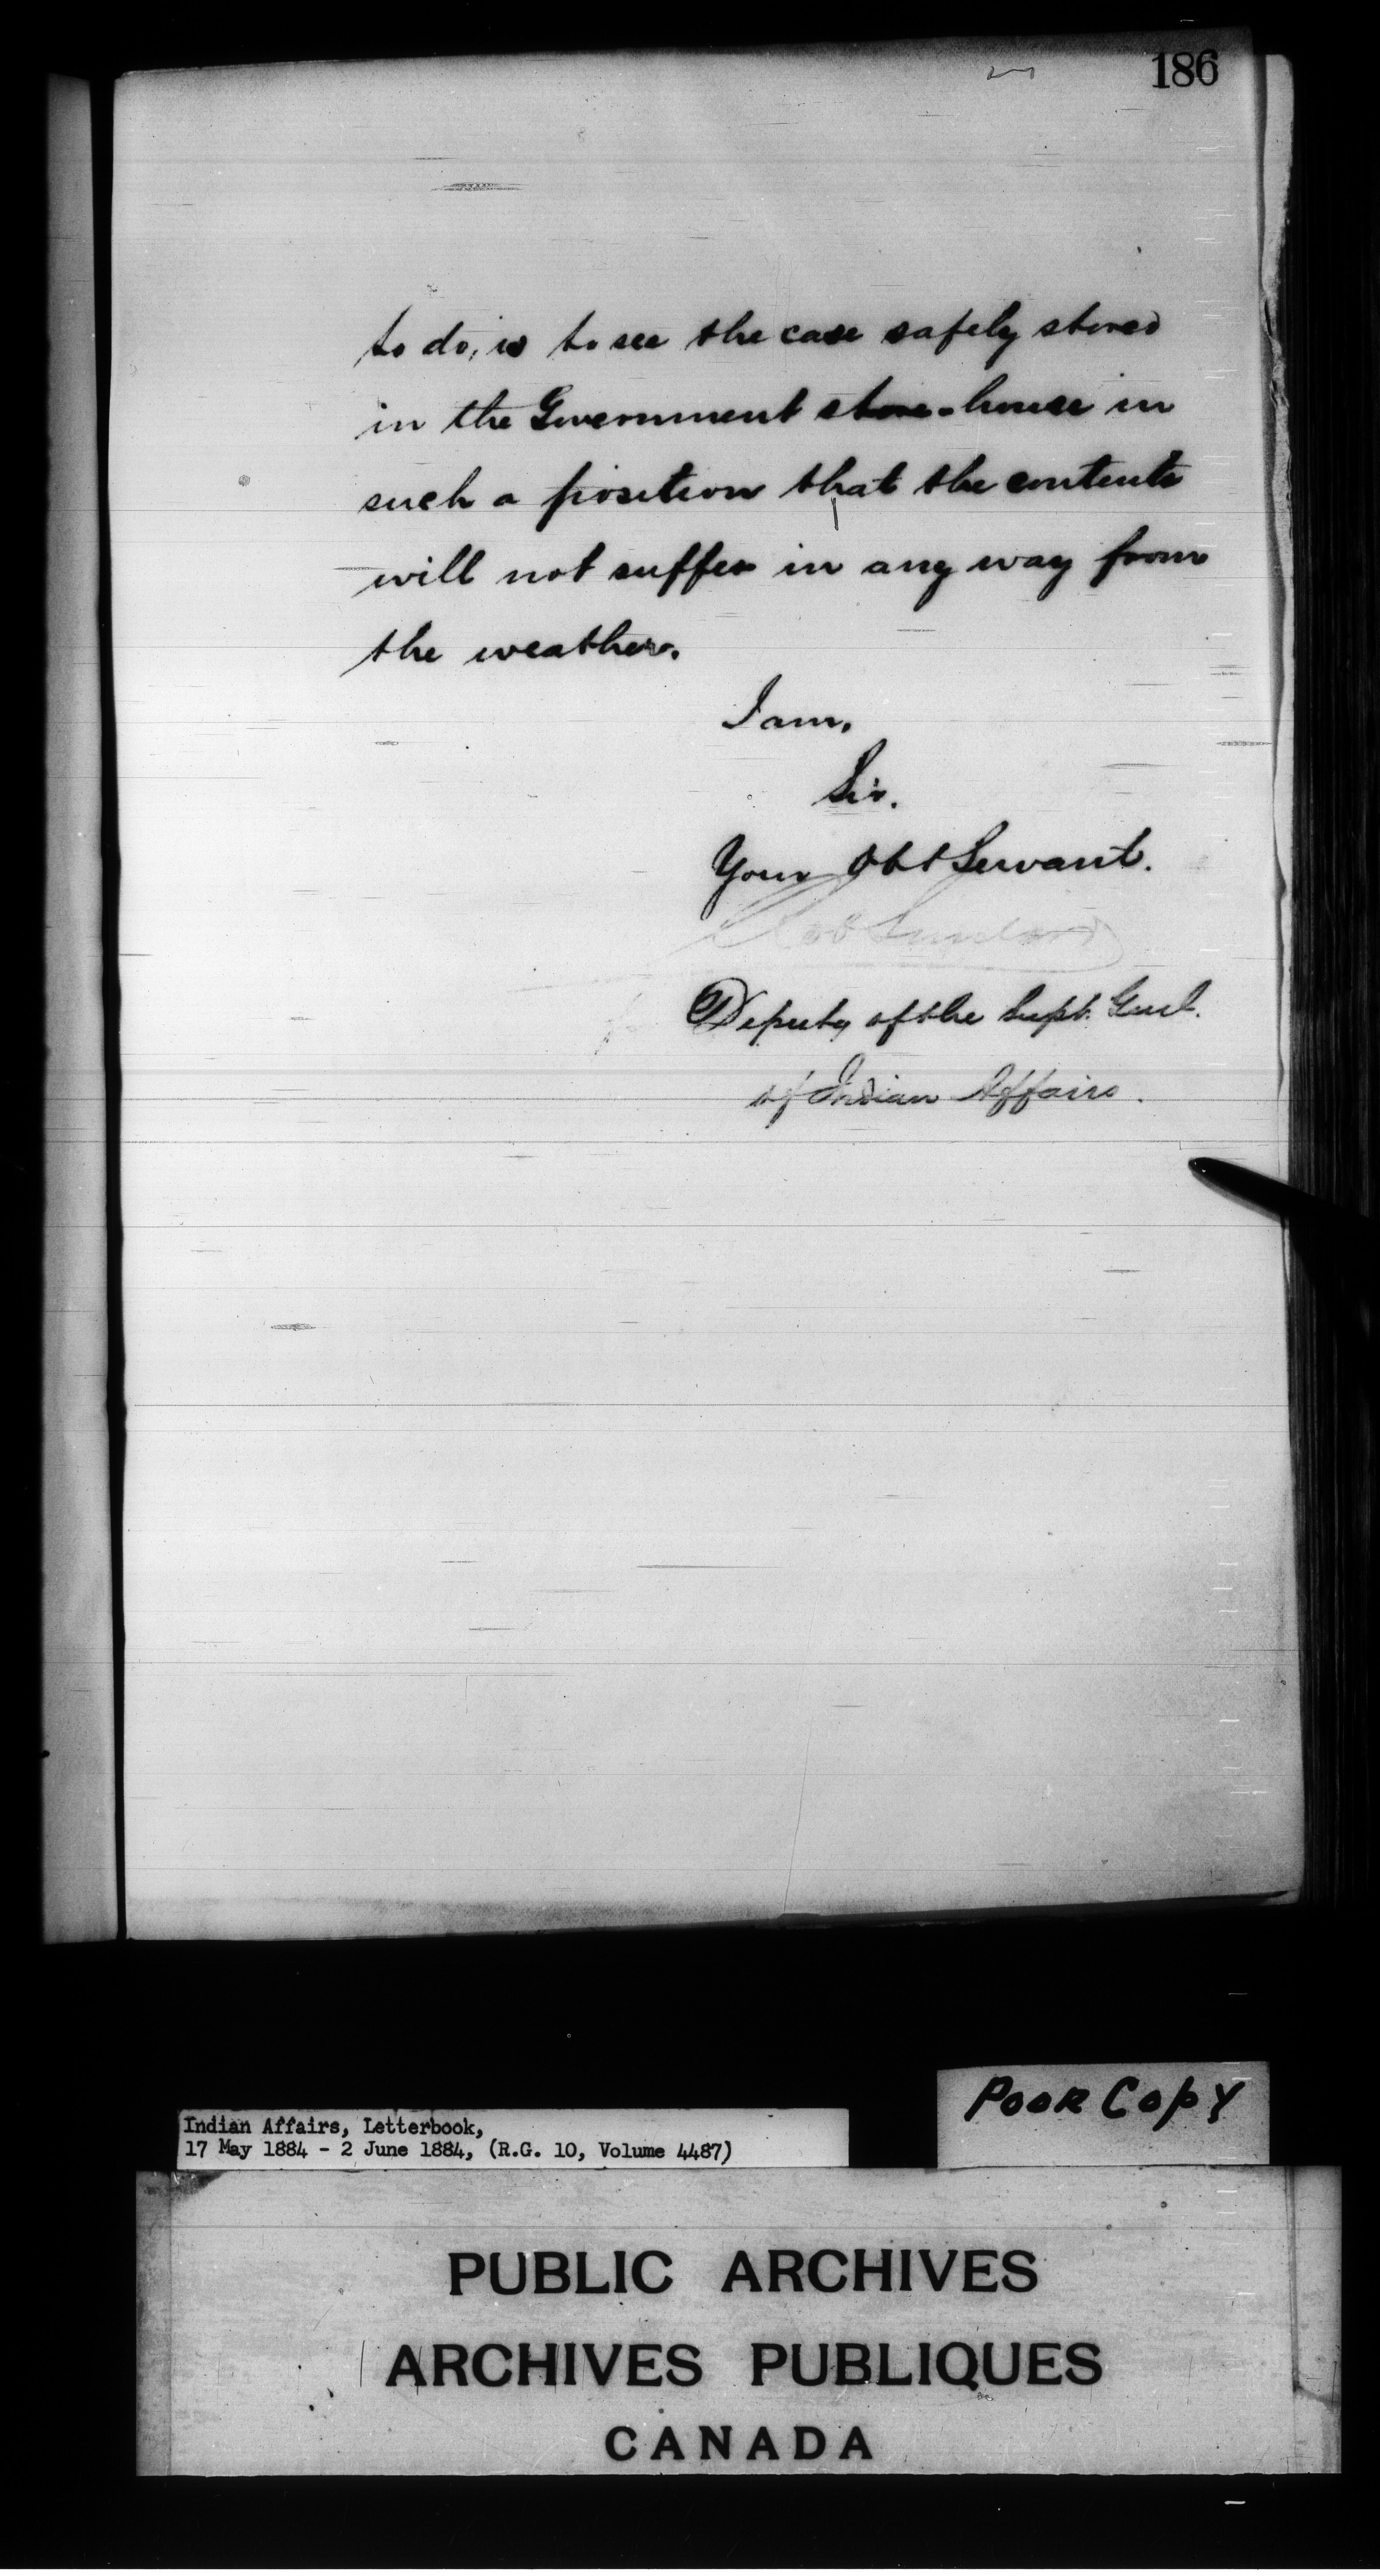 186
to do, is to see the case safely stored
in the Government store-house in
such a position that the contents
will not suffer in any way from
the weather.
I am,
Sir.
Your Obt Servant.
Deputy of the Supt. Genl.
of Indian Affairs.
Poor Copy
Indian Affairs, Letterbook,
17 May 1884 - 2 June 1884, (R.G. 10, Volume 4487)
PUBLIC ARCHIVES
ARCHIVES PUBLIQUES
CANADA